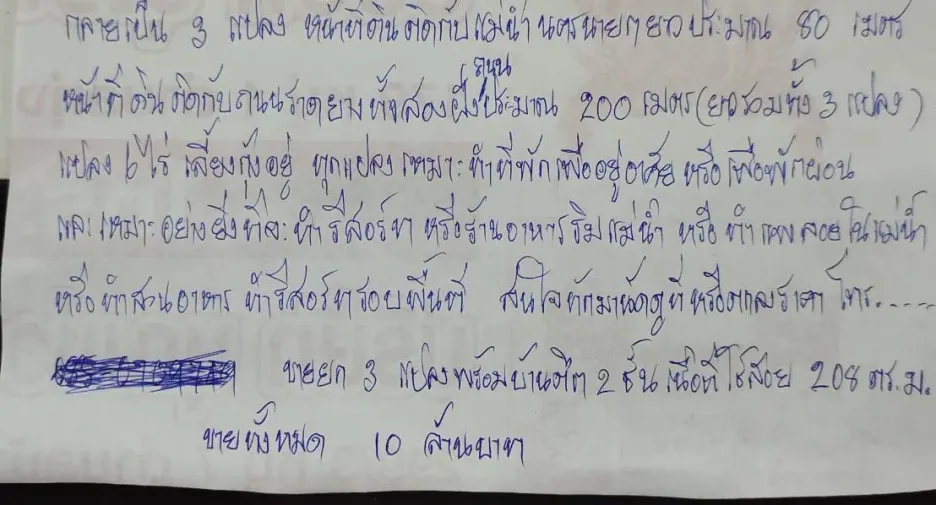 กลายเป็น 3 แปลง หน้าที่ดินติดกับแม่น้ำนครนายกยาวประมาณ 80 เมตร
ถนน
หน้าที่ดินติดกับถนนราดยางทั้งสองฝั่งประมาณ 200 เมตร (ยาวรวมทั้ง 3 แปลง)
แปลง 6 ไร่ เลี้ยงกุ้งอยู่ ทุกแปลงเหมาะทำที่พักเพื่ออยู่อาศัย หรือเพื่อพักผ่อน
และเหมาะอย่างยิ่งที่จะทำรีสอร์ท หรือร้านอาหารริมแม่น้ำ หรือทำแพลอยในแม่น้ำ
หรือทำสวนอาหาร ทำรีสอร์ทรอบพื้นที่ สนใจทักมานัดดูที่หรือตกลงราคา โทร.....
ขายยก 3 แปลงพร้อมบ้านตึก 2 ชั้นเนื้อที่ใช้สอย 208 ตร.ม.
ขายทั้งหมด 10 ล้านบาท